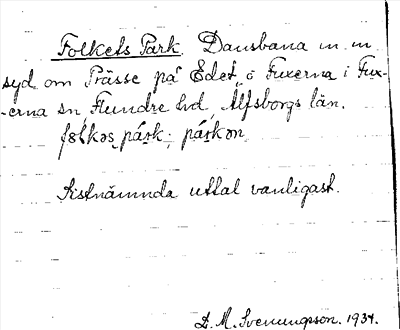 Folkets Park. Dansbana m m
syd om Prässe på Edet, ö Fuxerna i Fux-
-erna sn Flundre hd, Älfsborgs län.
pårk; pårkən
Sistnämnda uttal vanligast.
D. M. Svenungsson. 1934.